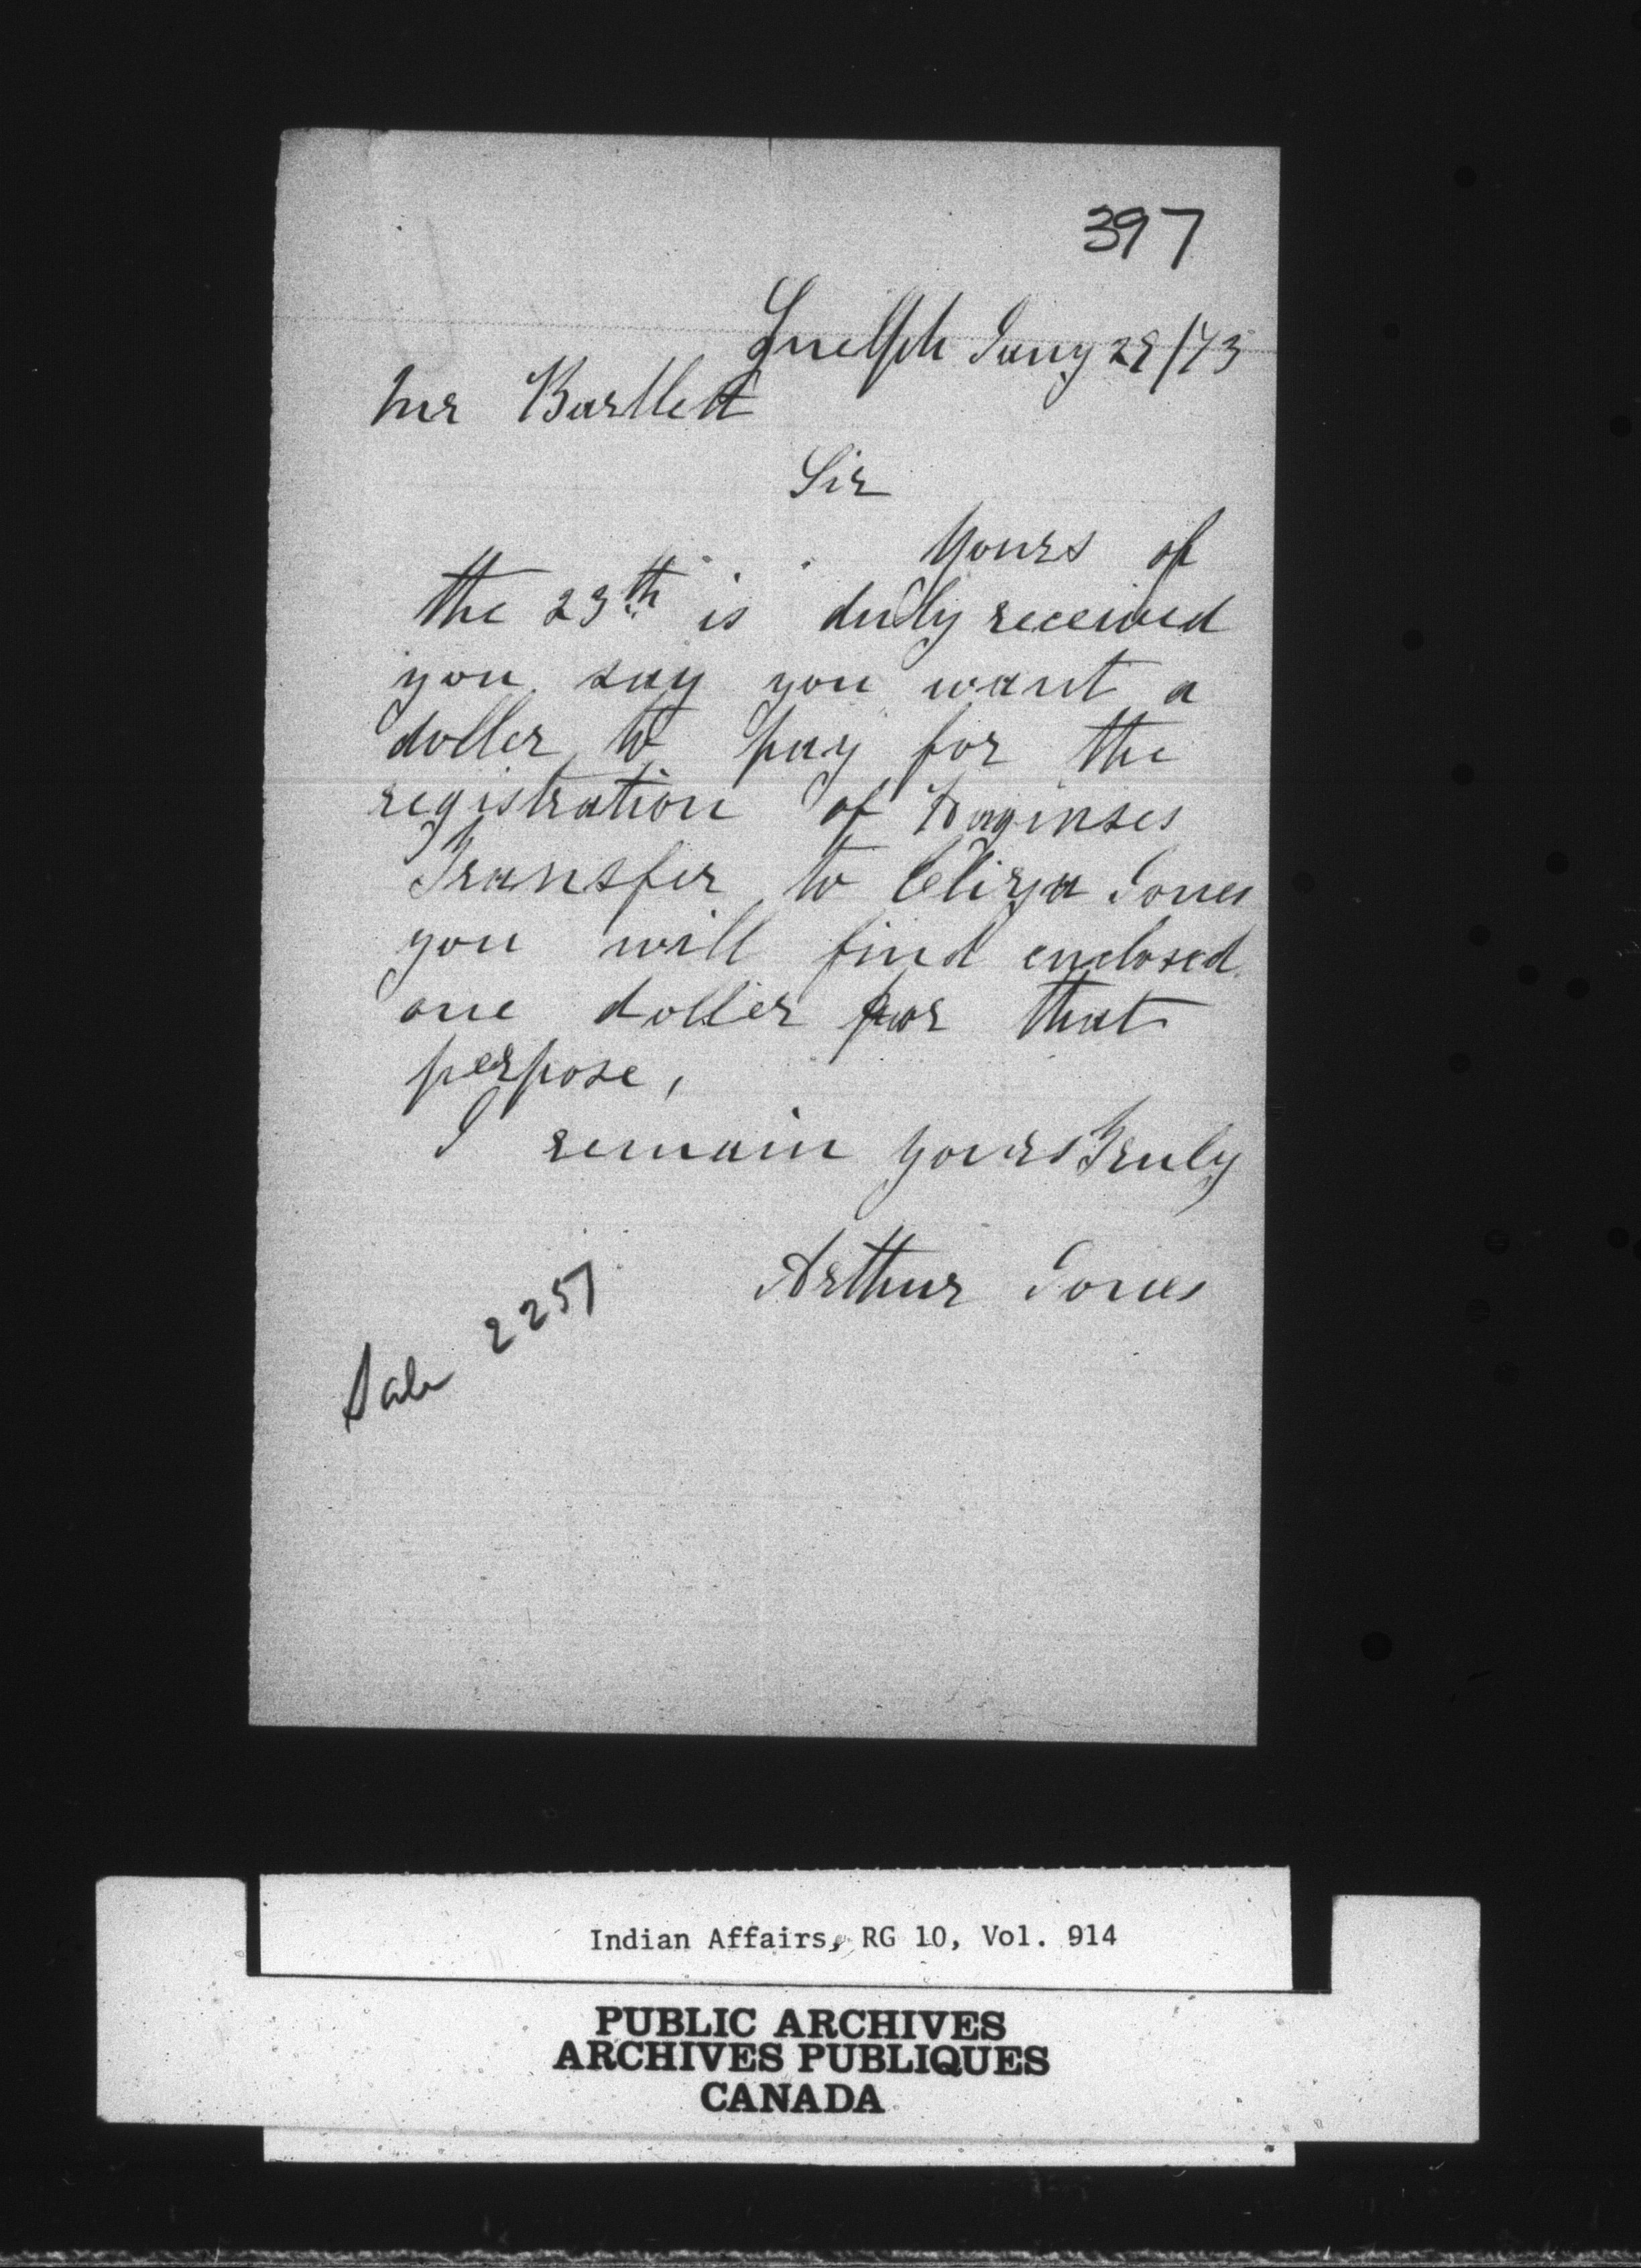 397
Guelph Jany 29/73
Mr Bartlett
Sir
Yours of
the 23th is duly received
you say you want a
doller to pay for the
registration of
Transfer to Eliza Jones
you will find enclosed
one doller for that
perpose,
I remain yours Truly
Arthur Jones
Sale 2257
Indian Affairs, RG 10, Vol. 914
PUBLIC ARCHIVES
ARCHIVES PUBLIQUES
CANADA